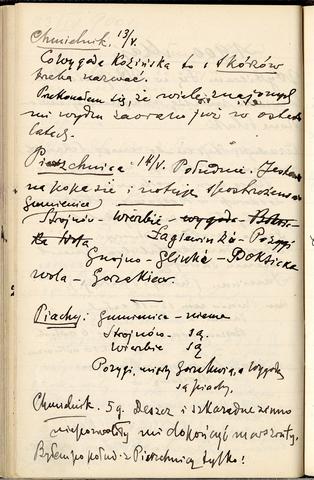 Chmielnik. 13/V.
Co Wygoda Kozińska to i Skórzów
trzeba nazwać.
Przekonałem się, że wiele znajomych
mi wydm zaorano już w ostat
latach.
Pierzchnica 14/V. Południe. Jestem
na popasie i notuję spostrzeżenia
Gumienice
Strojnów - Wierbie - wygoda -
ka Wola Łagiewniki - Pożogi
Gnojno - Glinka - Poksicka
wola - Gorzakiew.
Piachy: Gumienice - niema
Strojnów - są.
Wierbie są
Pożogi, między Gorzakwią, a Wygodą
są piachy.
Chmielnik. 5 g. Deszcz i szkaradne zimno
niepozwoliły mi dokończyć marszruty.
Byłem po połud. z Pierzchnicy tylko!